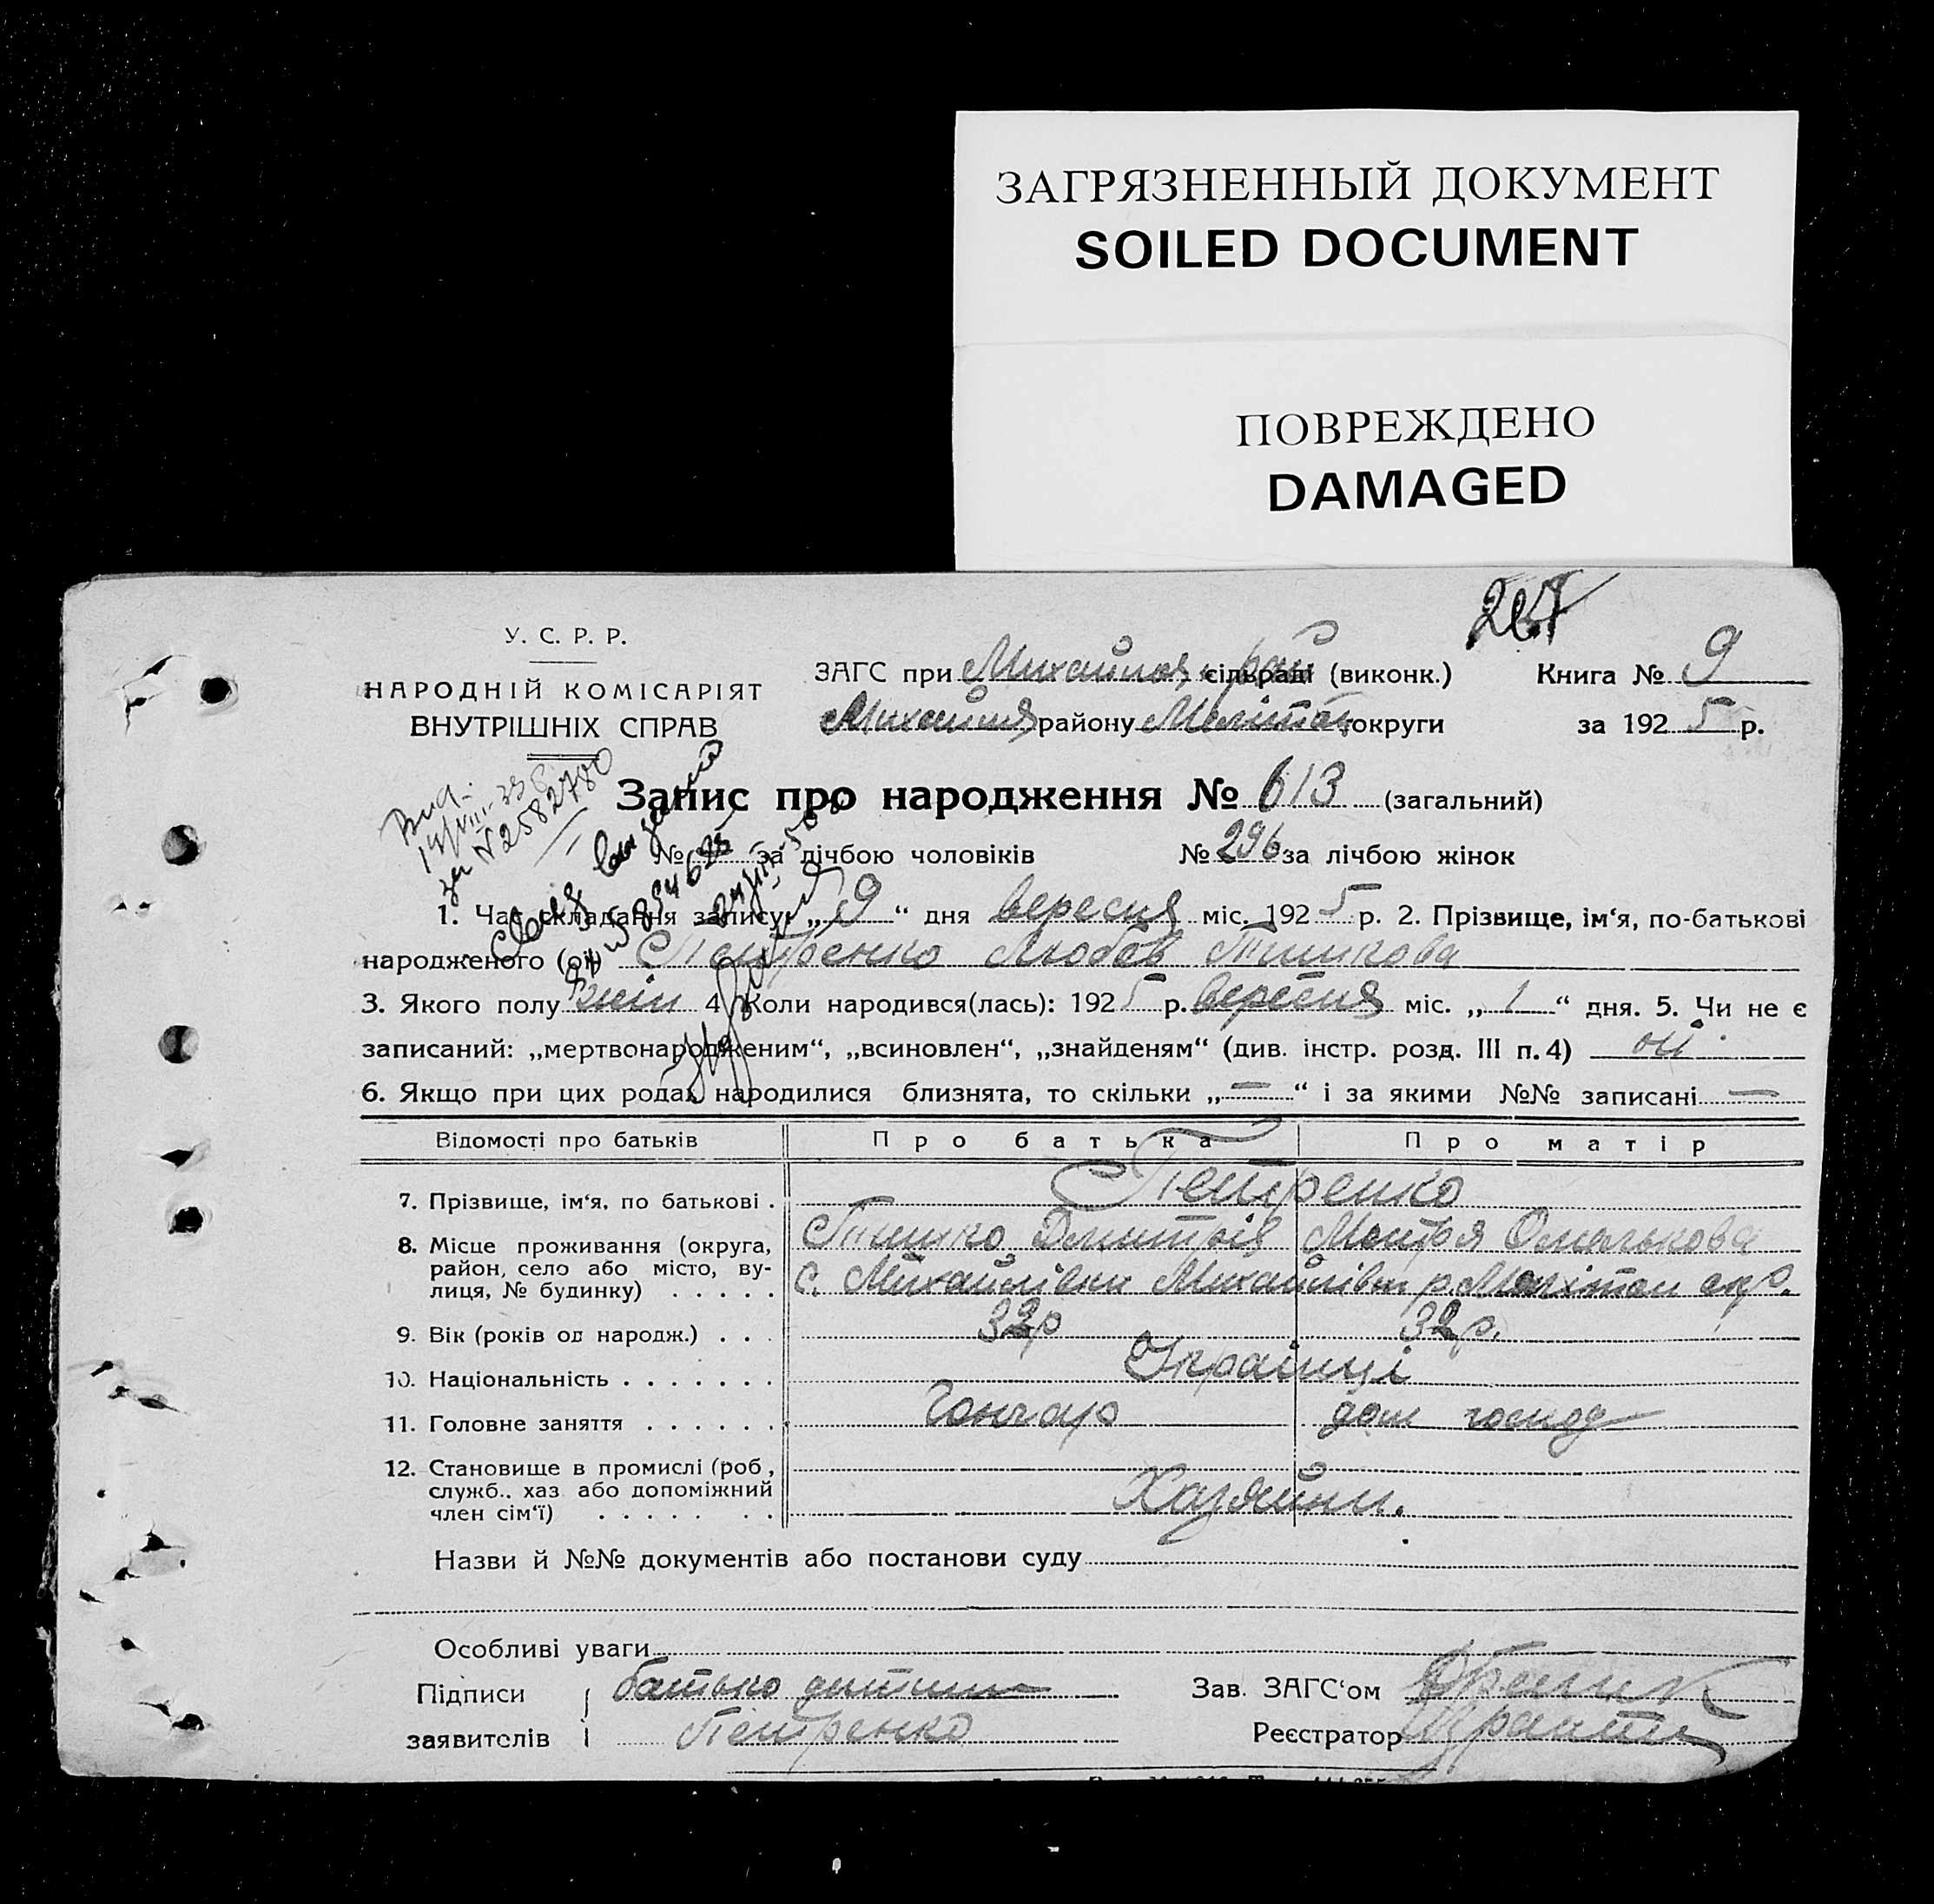 ЗАГРЯЗНЕННЫЙ ДОКУМЕНТ
SOILED DOCUMENT
ПОВРЕЖДЕНО
DAMAGED
У. С. Р. Р.
НАРОДНІЙ КОМІСАРІЯТ
ВНУТРІШНІХ СПРАВ
ЗАГС при Михайлов. сільраді рай (виконк.) Книга № 9
Михайлів району Мелітоп округи за 1925 р.
Вид.
за № 2582780
Запис про народження № 613 (загальний)
№ за лічбою чоловіків № 296 за лічбою жінок
1. Час складання запису: „9“ дня вересня міс. 1925 р. 2. Прізвище, ім‘я, по-батькові
народженого (ої) Петренко Любов Тишкова
3. Якого полу жін 4. Коли народився(лась): 1925 р. вересня міс. „1“ дня. 5. Чи не є
записаний: „мертвонародженим“, „всиновлен“, „знайденям“ (див. інстр. розд. III п. 4) ні
6. Якщо при цих родах народилися близнята, то скільки „—“ і за якими №№ записані —
Відомості про батьків Про батька Про матір
7. Прізвище, ім‘я, по батькові . Петренко
Тишко Дмитрів Мотря Омелькова
8. Місце проживання (округа, район, село або місто, вулиця, № будинку) . . . . . с. Михайлівки Михайлівськ р. Мелітоп окр.
9. Вік (років од народж.) . . . 32р 32р.
10. Національність . . . . . . . Українці
11. Головне заняття . . . . . . Гончар дом господ
12. Становище в промислі (роб., служб., хаз. або допоміжний член сім‘ї) . . . . . . . Хазяйни.
Назви й №№ документів або постанови суду
Особливі уваги
Підписи батько дитини Зав. ЗАГС‘ом
заявителів Петренко Реєстратор